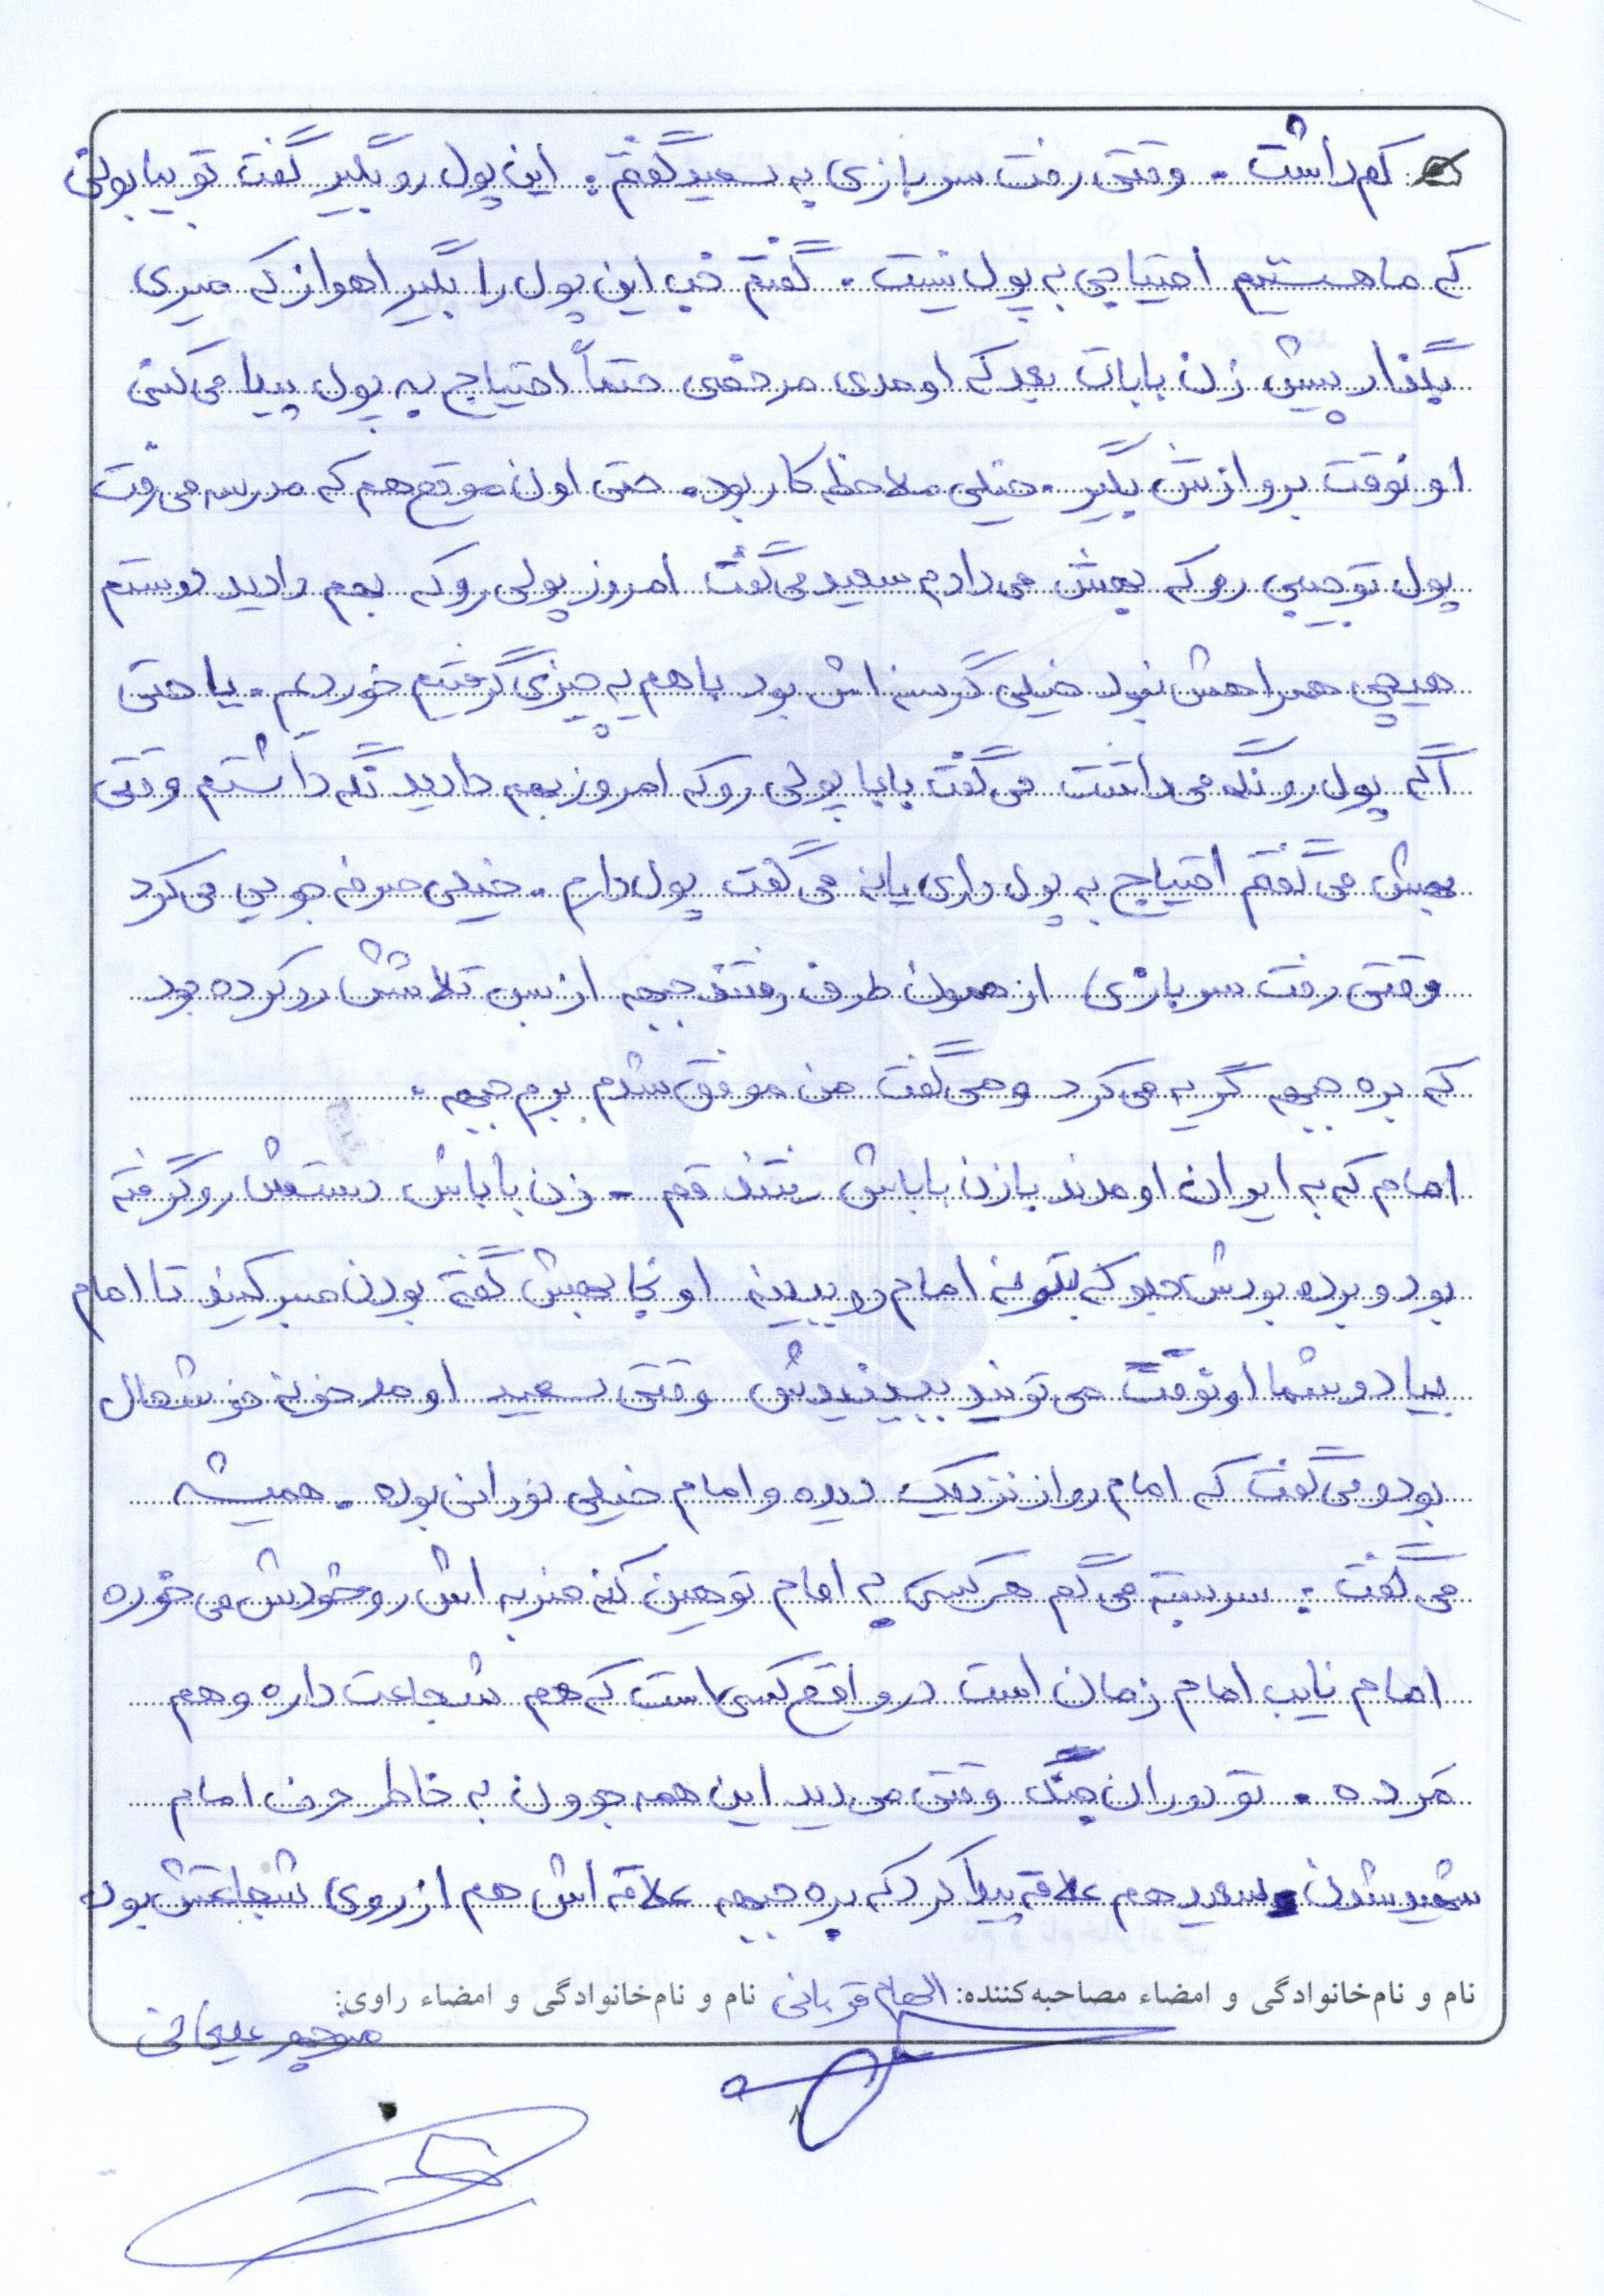 کم داشت . وقتی رفت سربازی به سعید گفتم : این پول رو بگیر گفت تو بیابونی
که ما هستیم احتیاجی به پول نیست . گفتم خب این پول را بگیر اهواز که میری
بگذار پیش زن بابات بعد که اومدی مرخصی حتماً احتیاج به پول پیدا می کنی
اونوقت برو ازش بگیر . خیلی ملاحظه کار بود . حتی اون موقع هم که مدرسه می رفت
پول توجیبی رو که بهش می دادم سعید می گفت امروز پولی رو که بهم دادید دوستم
هیچی همراهش نبود خیلی گرسنه اش بود باهم یه چیزی گرفتیم خوردیم . یا حتی
اگه پول رو نگه می داشت می گفت بابا پولی رو که امروز بهم دادید نگه داشتم وقتی
بهش می گفتم احتیاج به پول داری یا نه می گفت پول دارم . خیلی صرفه جویی می کرد
وقتی رفت سربازی از همون طرف رفتند جبهه از بس تلاشش رو کرده بود
که بره جبهه گریه می کرد و می گفت من موفق شدم برم جبهه .
امام که به ایران اومدند با زن باباش رفتند قم - زن باباش دستش رو گرفته
بود و برده بودش جلو که بتونه امام رو ببینه اونجا بهش گفته بودن صبر کنید تا امام
بیاد و شما اونوقت می تونید ببینیدش وقتی سعید اومد خونه خوشحال
بود و می گفت که امام رو از نزدیک دیده و امام خیلی نورانی بوده . همیشه
می گفت : سربسته می گم هر کسی به امام توهین کنه ضربه اش رو خودش می خوره
امام نایب امام زمان است در واقع کسی است که هم شجاعت داره و هم
مَرده . تو دوران جنگ وقتی می دید این همه جوون به خاطر حرف امام
شهید شدن سعید هم علاقه پیدا کرد که بره جبهه علاقه اش هم از روی شجاعتش بود
نام و نام‌خانوادگی و امضاء مصاحبه‌کننده: الهام قربانی نام و نام‌خانوادگی و امضاء راوی:
منوچهر علیخانی
۸